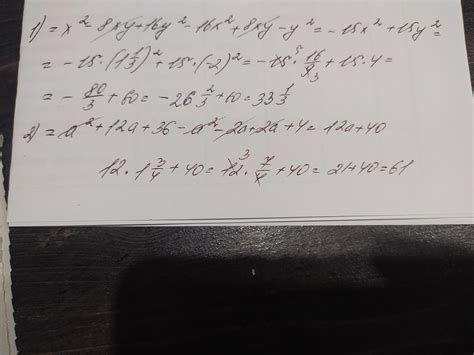 1) = x² - 8xy + 16y² - 16x² + 8xy - y² = -15x² + 15y² =
= -15·(1 1/3)² + 15·(-2)² = -15⁵·16/9₃ + 15·4 =
= - 80/3 + 60 = -26 2/3 + 60 = 33 1/3
2) = a² + 12a + 36 - a² - 2a + 2a + 4 = 12a + 40
12·1 3/4 + 40 = 12³·7/4 + 40 = 21 + 40 = 61